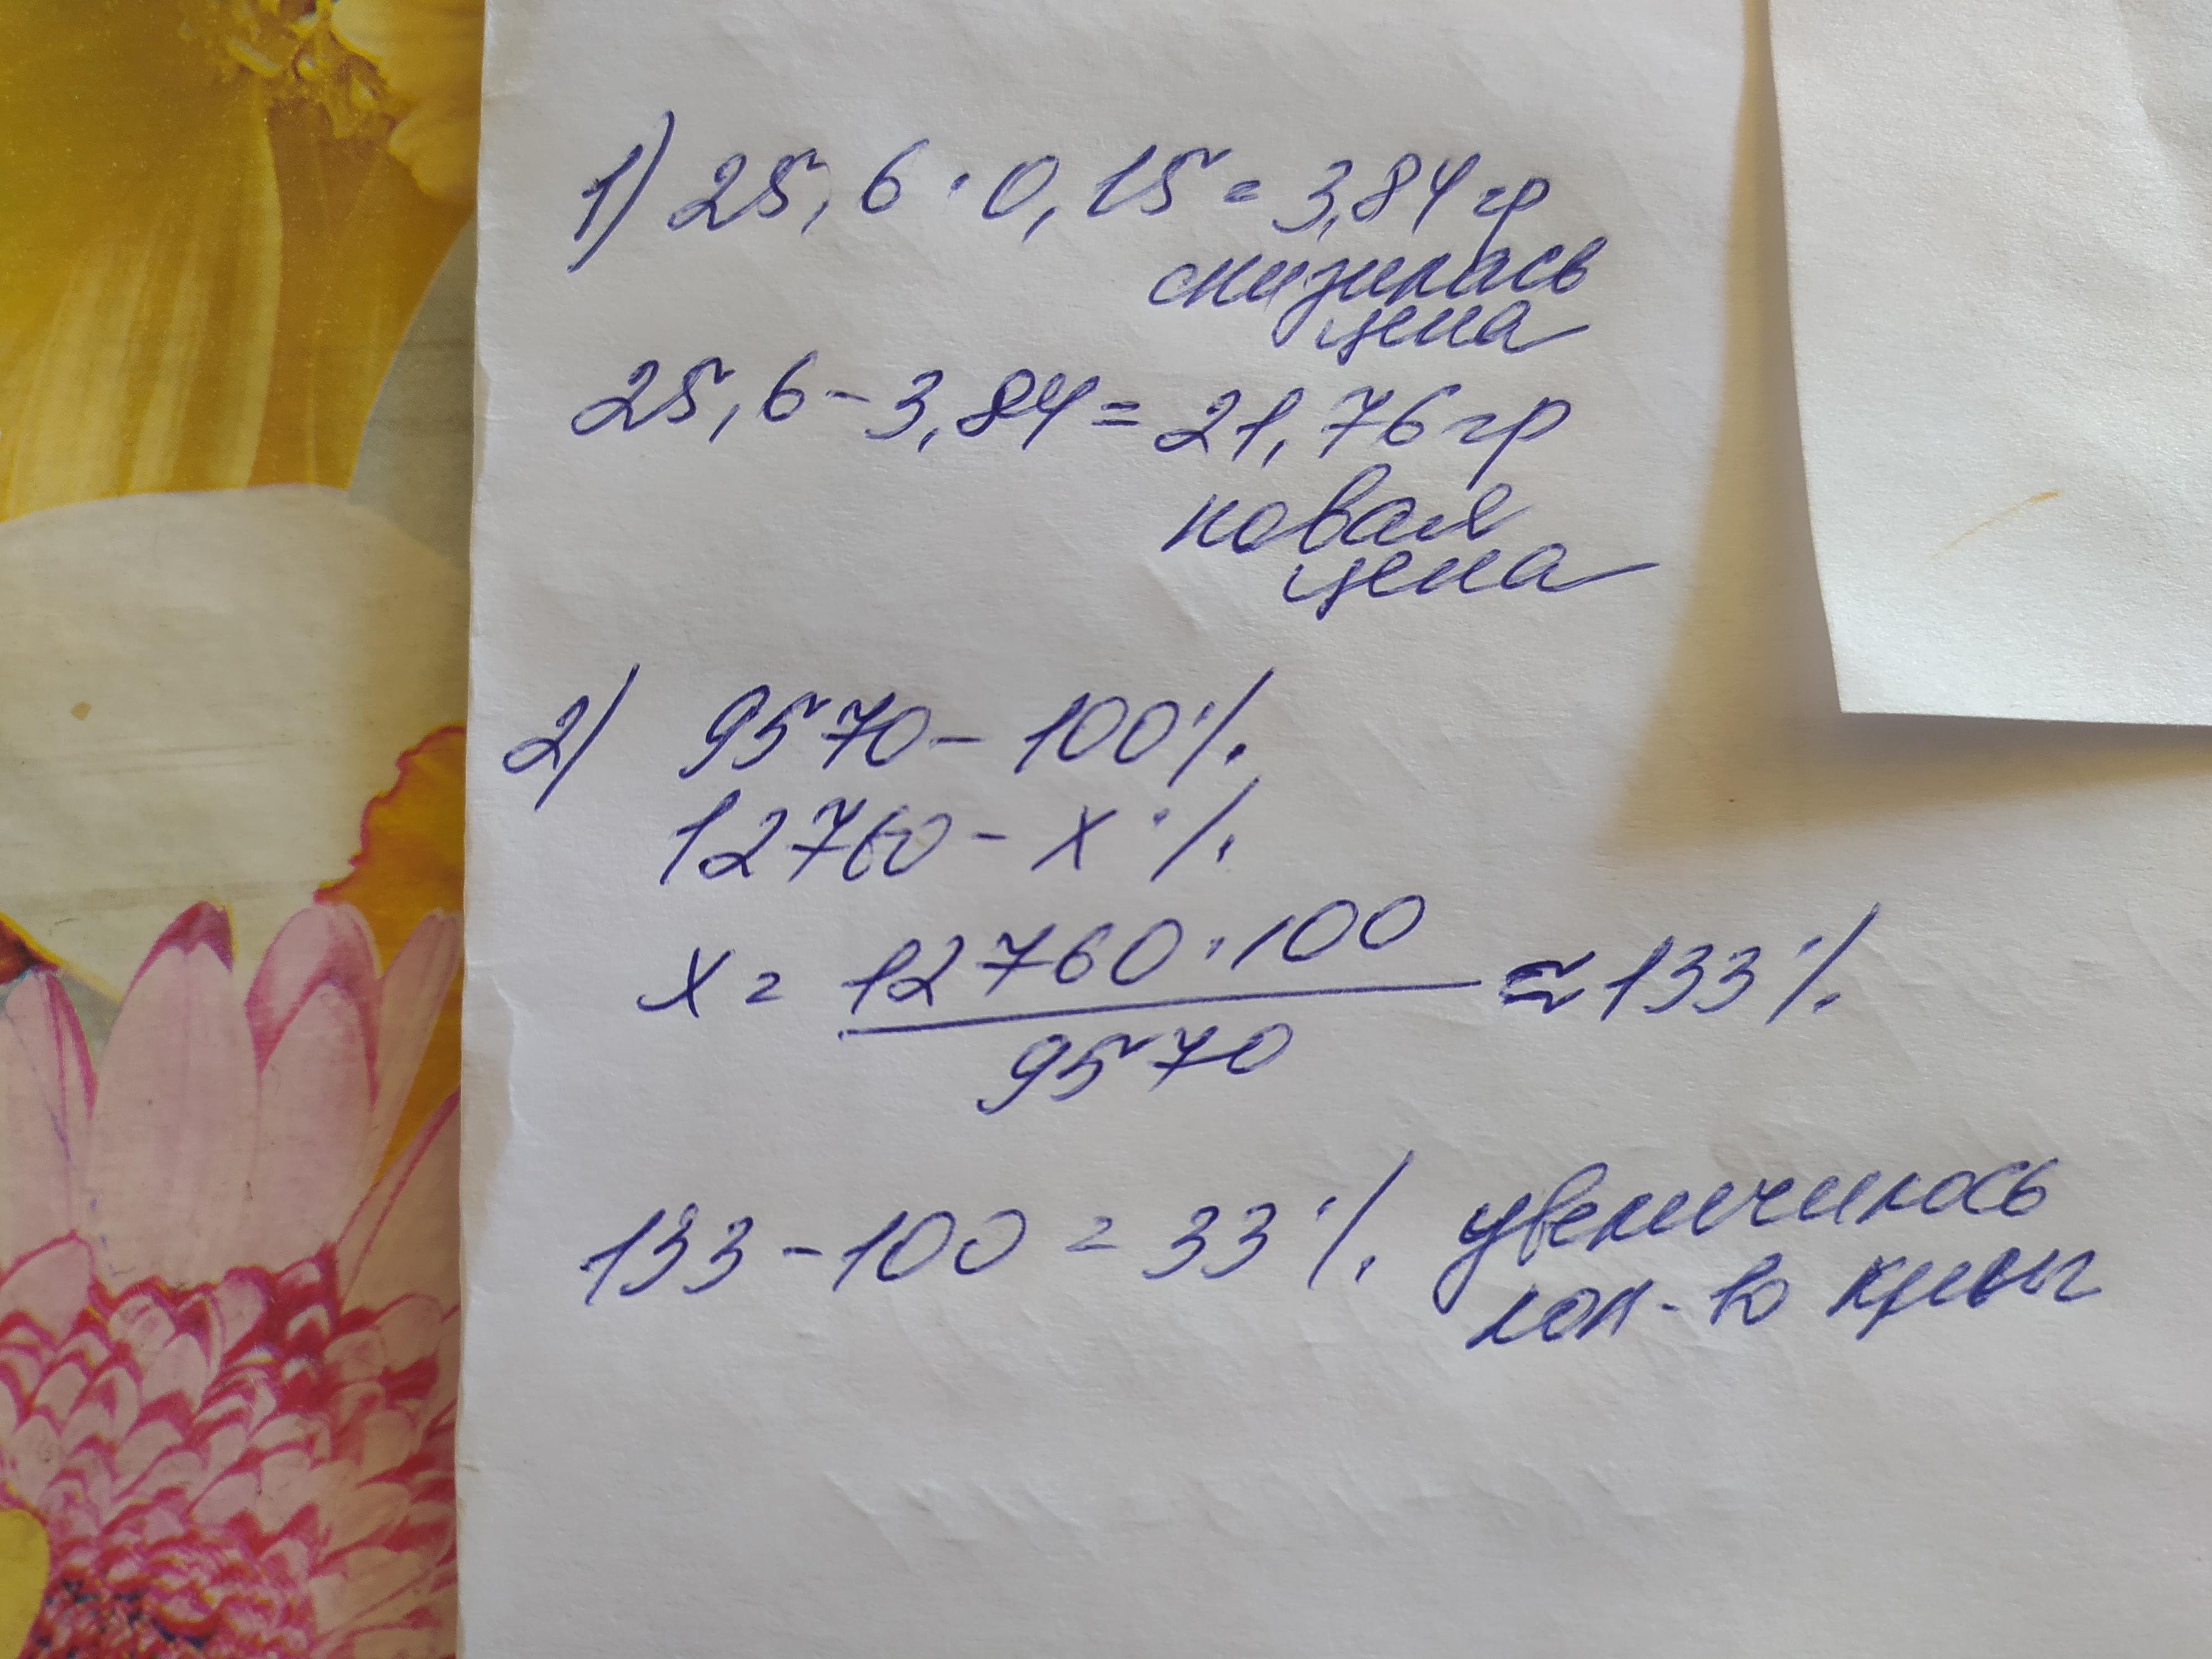 1) 25,6 · 0,15 = 3,84 гр
снизилась
цена
25,6 - 3,84 = 21,76 гр
новая
цена
2) 9570 - 100%
12760 - x %
x = 12760 · 100 / 9570 ≈ 133 %
133 - 100 = 33 % увеличилось
кол-во книг